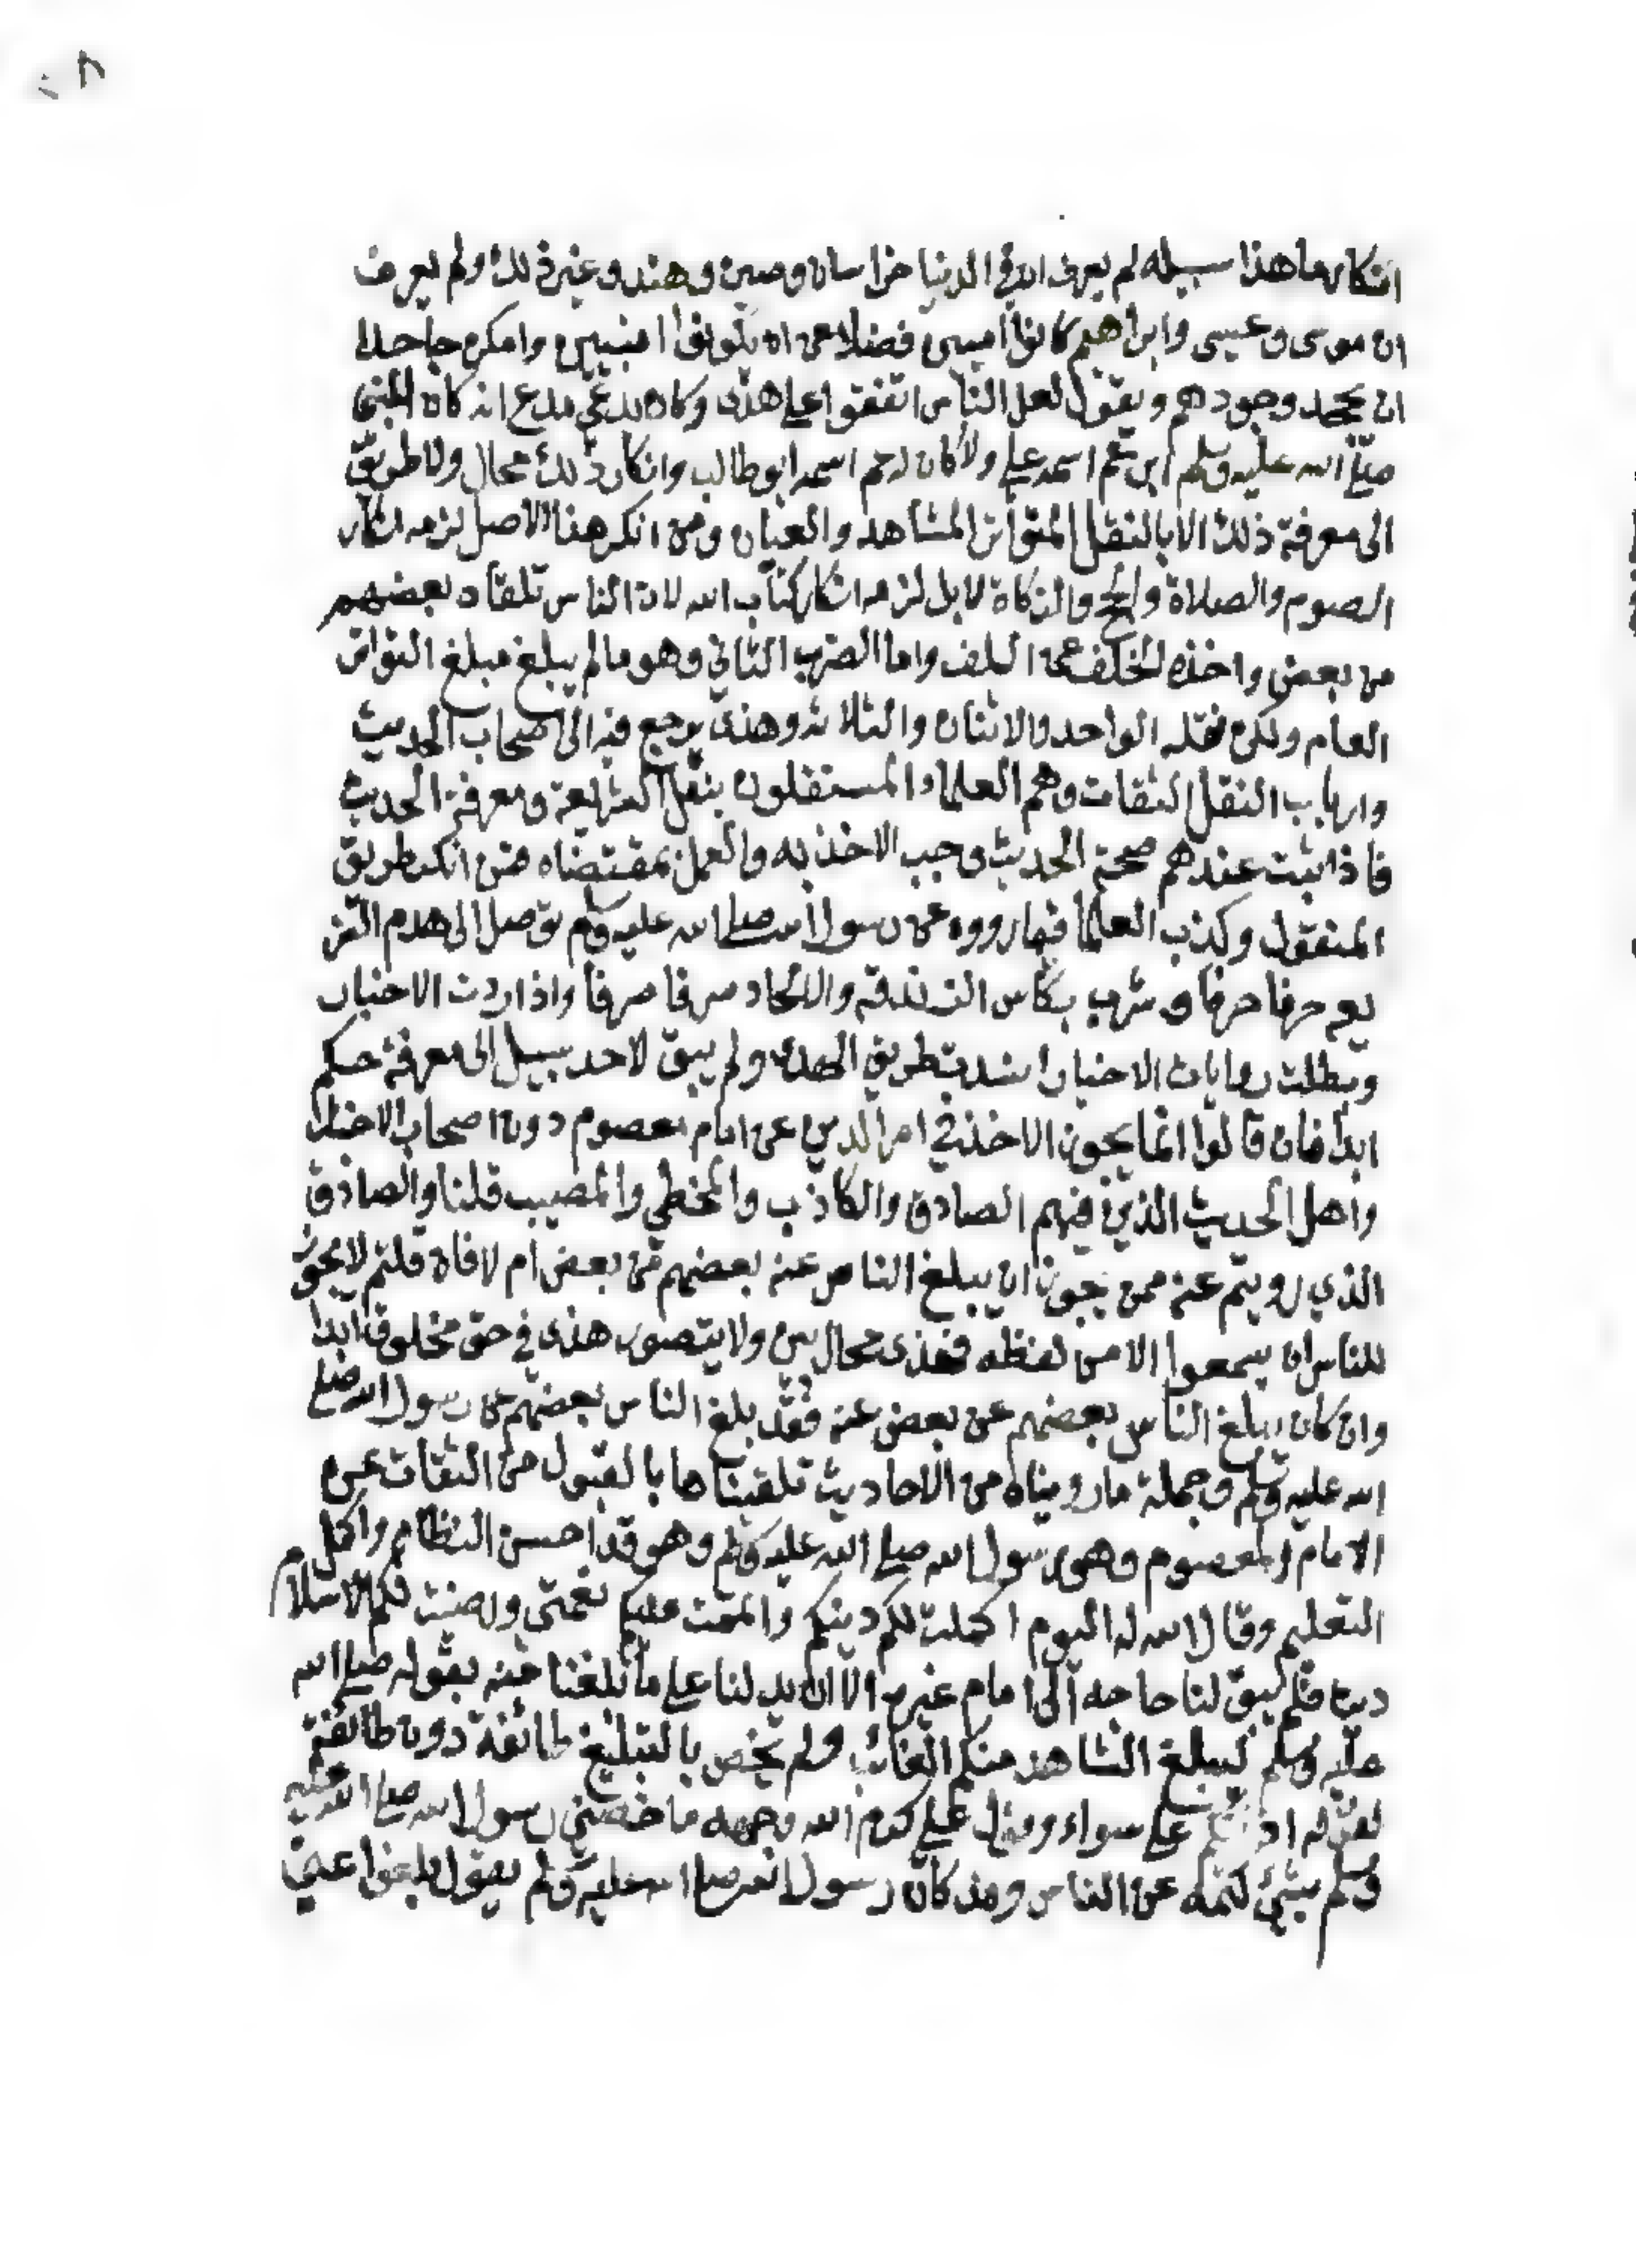 انكار ما هذا سبيله لم يعرف ان في الدنيا خراسان وصين وهند وغير ذلك ولم يعرف
ان موسى وعيسى وابراهيم كانوا اميين فضلا عن ان يكونوا انبيين وامكن جاحدا
ان يجحد وجودهم ويقول لعل الناس اتفقوا على هذى وكان يدعى مدع انه كان للنبى
صلى الله عليه وسلم ابن عم اسمه علي ولا كان له عم اسمه ابو طالب وانكار ذلك محال ولا طريق
الى معرفة ذلك الا بالنقل المتواتر المشاهد والعيان ومن انكر هذا الاصل لزمه انكار
الصوم والصلاة والحج والزكاة لا بل لزمه انكار كتاب الله لان الناس تلقاه بعضهم
من بعض واخذه الخلف عن السلف واما الضرب الثاني وهو ما لم يبلغ مبلغ التواتر
العام ولكن نقله الواحد والاثنان والثلاثه وهذى يرجع فيه الى اصحاب الحديث
وارباب النقل الثقات وهم العلماء المستقلون بنقل الشريعة ومعرفة الحديث
فاذا ثبت عندهم صحة الحديث وجب الاخذ به والعمل بمقتضاه فمن انكر طريق
المنقول وكذب العلما فيما رووه عن رسول الله صلى الله عليه وسلم توصل الى هدم الشر
يعه حرفا حرفا وشرب بكاس الزندقة والالحاد صرفا صرفا واذا ردت الاخبار
وبطلت روايات الاخيار انسدت طريق الهدى ولم يبق لاحد سبيل الى معرفة حكم
ابدا فان قالوا انما يجوز الاخذ في امر الدين عن امام معصوم دون اصحاب الاخبار
واهل الحديث الذين فيهم الصادق والكاذب والمخطي والمصيب قلنا والصادق
الذي رويتم عنه ممن يجوز ان يبلغ الناس عنه بعضهم من بعض ام لا فان قلتم لا يجوز
للناس ان يسمعوا الا من لفظه فهذى محال بين ولا يتصور هذى في حق مخلوق ابدا
وان كان يبلغ الناس بعضهم عن بعض عنه فقد بلغ الناس بعضهم عن رسول الله صلى
الله عليه وسلم وجملة ما رويناه من الاحاديث تلقيناها بالقبول من الثقات عن
الامام المعصوم وهو رسول الله صلى الله عليه وسلم وهو قد احسن النظام واكمل
التعليم وقال الله له اليوم اكملت لكم دينكم واتممت عليكم نعمتى ورضيت لكم الاسلام
دينا فلم يبق لنا حاجه الى امام غيره الا ان يدلنا على ما بلغنا عنه بقوله صلى الله
عليه وسلم ليبلغ الشاهد منكم الغائب ولم يخص بالتبليغ طائفة دون طائفة
لقوله على سواء وبقول علي كرم الله وجهه ما خصني رسول الله صلى الله عليه
وسلم بشئ كتمه عن الناس وقد كان رسول الله صلى الله عليه وسلم يقول بلغوا عني